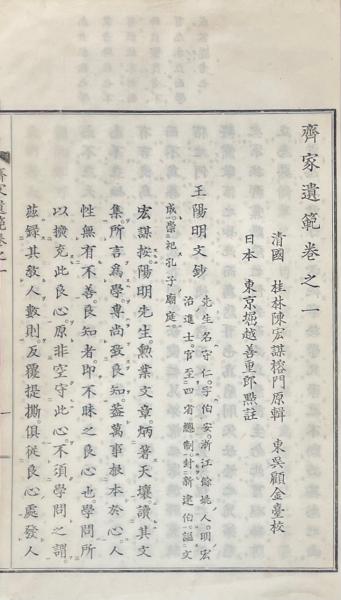 齊家遺範卷之一
清國 桂林陳宏謀榕門原輯 東吳顧金臺校
日本 東京堀越善重郎點註
王陽明文鈔
先生名守仁。字伯安。浙江餘姚人。明宏
治進士。官至四省總制。封新建伯。謚文
成。崇祀孔子廟庭。
宏謀按。陽明先生。勲業文章。炳著天壤。讀其文
集。所言爲學。專尚致良知。蓋萬事根本於心。人
性無有不善。良知者。即不昧之良心也。學問所
以擴充此良心。原非空守此心。不須學問之謂。
茲錄其教人數則。反覆提撕。俱從良心處發人
齊家遺範卷之一
一